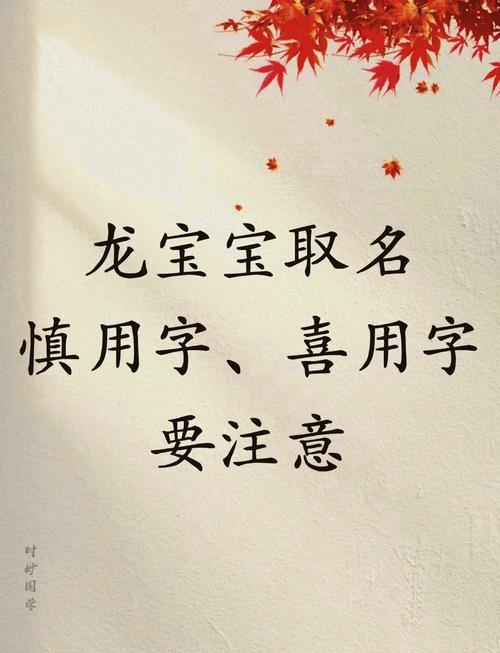 龙宝宝取名
慎用字、喜用字
要注意
时妙国学